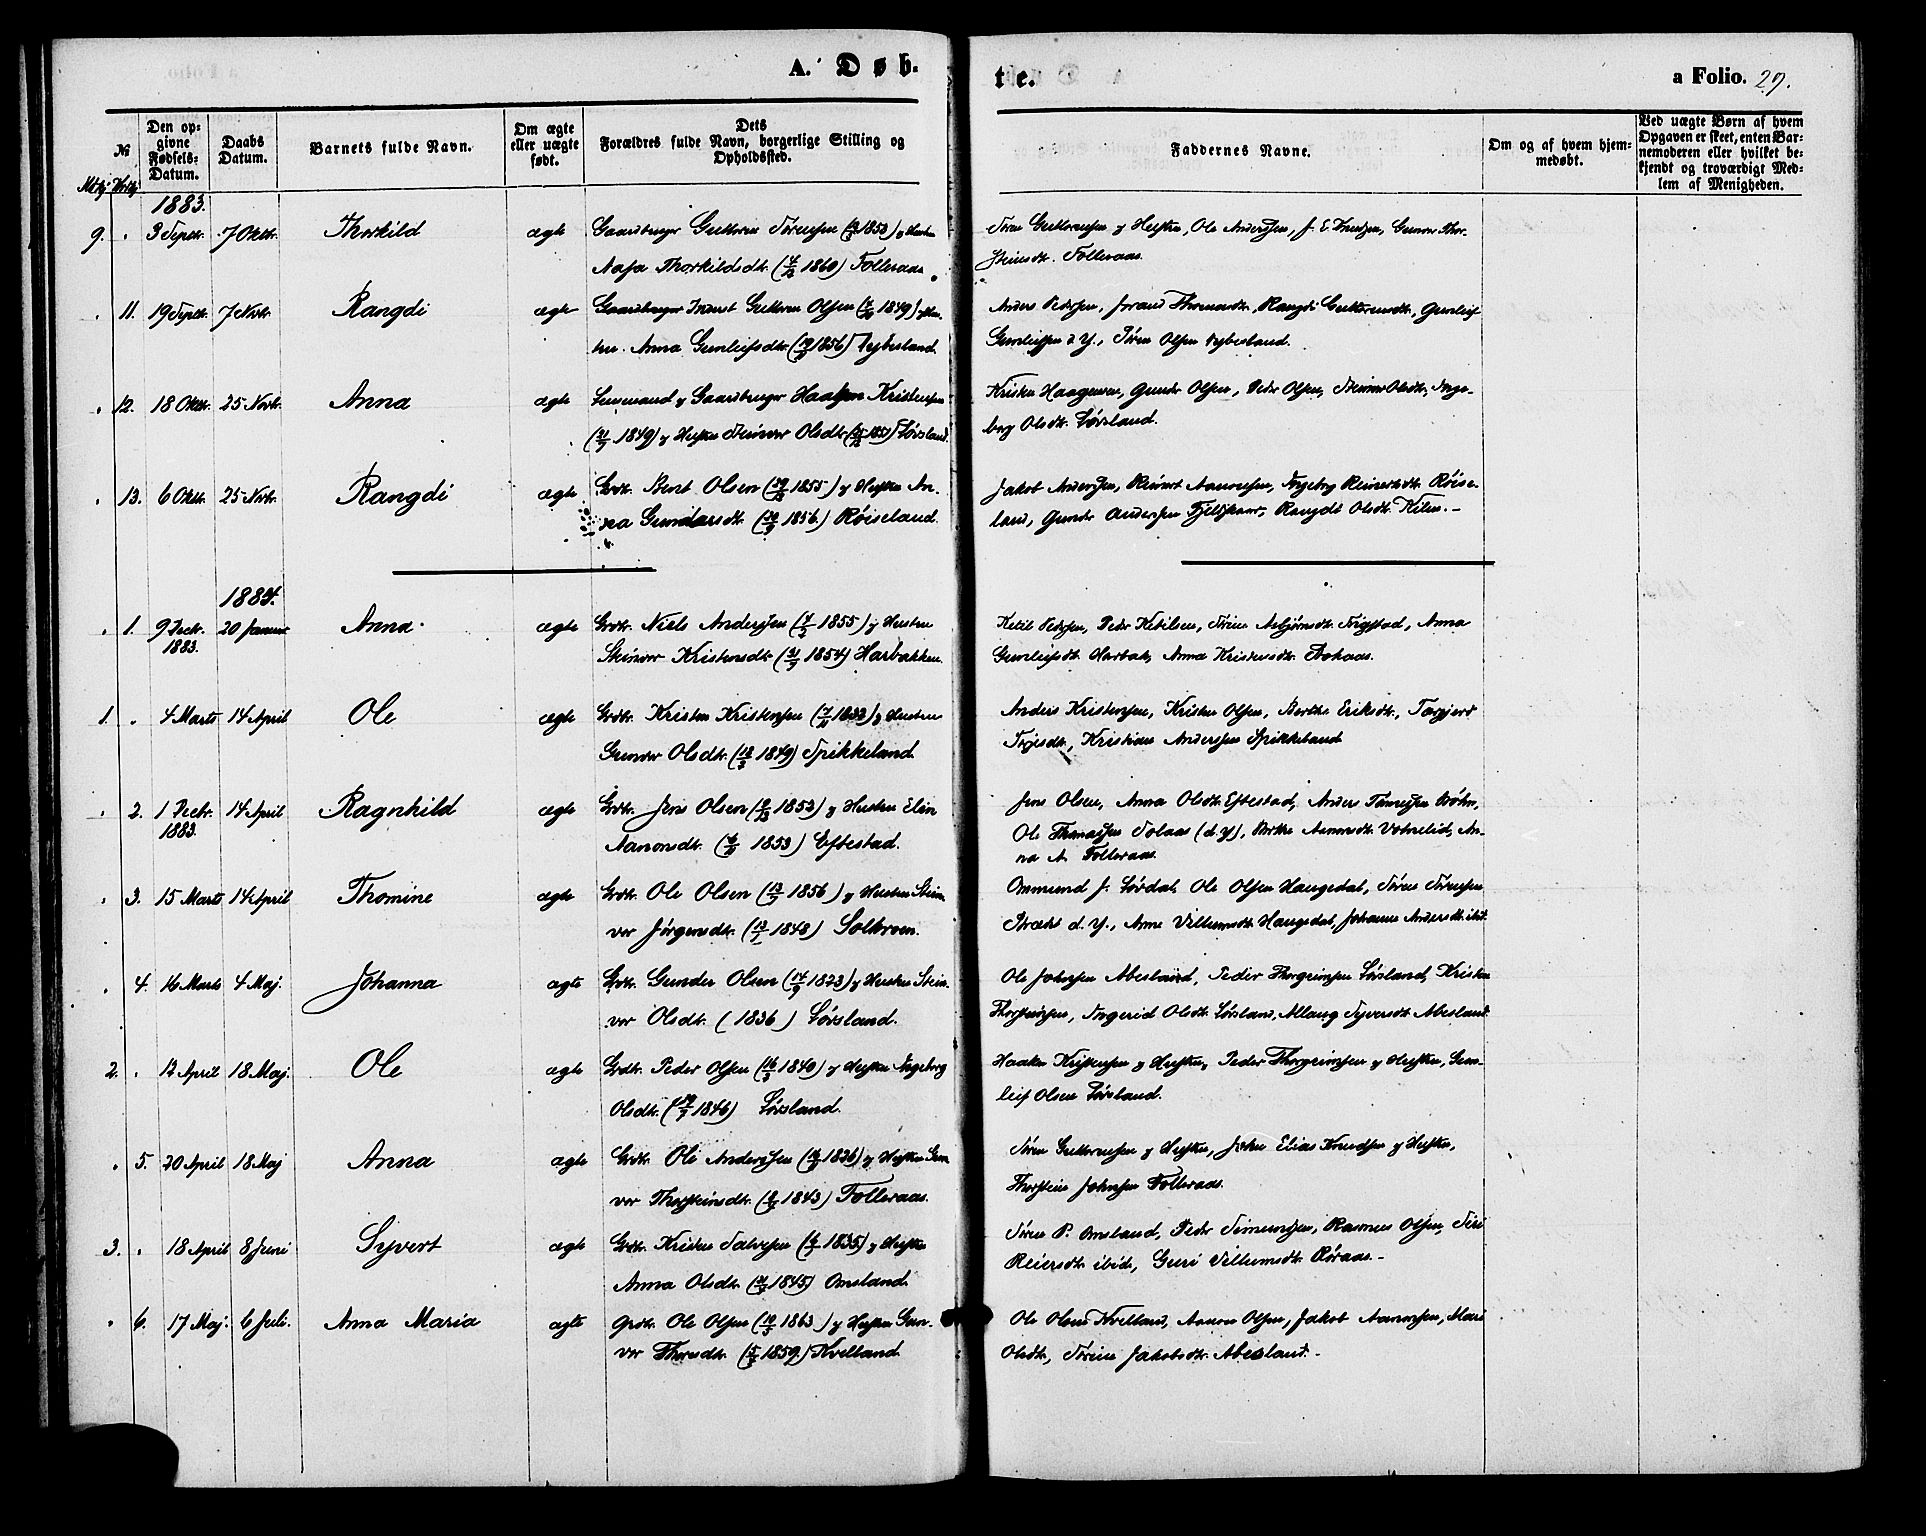 A. Døb-
te.
a Folio. 29.
№
Mkj. Kvkj.
Den op-
givne
Fødsels-
Datum.
Daabs
Datum.
Barnets fulde Navn.
Om ægte
eller uægte
født.
Dets
Forældres fulde Navn, borgerlige Stilling og
Opholdssted.
Faddernes Navne.
Om og af hvem hjem-
medøbt.
Ved uægte Børn af hvem
Opgaven er skeet, enten Bar-
nemoderen eller hvilket be-
kjendt og troværdigt Med-
lem af Menigheden.
1883.
9. 3 Septr. 7 Oktr. Thorkild ægte Gaardbruger Guttorm Sørensen 1853) og Hustru
Aasa Thorkildsdt. 1860) Folleraas.
Søren Guttormsen og Hustru, Ole Anderssen, J. E. Knudsen, Gunvor Thor-
steinsdt. Folleraas.
11. 19 Septr. 7 Novr. Rangdi ægte Gaardbruger Guttorm Olsen 1849) Hus-
tru Anna Gunleifsdt. 1856)
Anders Pedersen, Rangdi Guttormsdt., Gunleif
Gunleifsen d. Y., Søren Olsen
12. 18 Oktr. 25 Novr. Anna ægte Lensmand og Gaardbruger Haaken Kristensen
1849) og Hustru Steinvor Olsdt. Løvsland.
Kristen Haagensen, Gunder Olsen, Peder Olsen, Steinvor Olsdt., Inge-
borg Olsdt. Løvsland.
13. 6 Oktr. 25 Novr. Rangdi ægte Grdbr. Bent Olsen 1855) og Hustru An-
na Gundersdt. 1856) Røiseland.
Jakob Anderssen, Reinert Aanonsen, Ingeborg Reinertsdt. Røise-
land, Gunder Anderssen Rangdi Olsdt. Kilen. -
1884.
1. 9 Decbr. 20 Januar Anna ægte Grdbr. Niels Anderssen 1855) og Hustru
1883.
Steinvor Kristensdt. 1854) Harbakken.
Ketil Pedersen, Peder Ketilsen, Sørine Asbjørnsdt. Frigstad, Anna
Gunleifsdt. Harbak, Anna Kristensdt.
1. 4 Marts 14 April Ole ægte Grdbr. Kristen Kristensen 1833) og Hustru
Gunvor Olsdt. 1849) Spikkeland.
Anders Kristensen, Kristen Olsen, Berthe Eriksdt., Torjerd
Kristian Anderssen Spikkeland
2. 1 Decbr. 14 April Ragnhild ægte Grdbr. Jens Olsen 1853) og Hustru Elen
1883.
Aanonsdt. 1853) Eftestad.
Jens Olsen, Anna Olsdt. Eftestad, Anders
Ole Thomassen Solaas (d. y), Berthe Aanonsdt. Votnelid, An-
na A. Folleraas.
3. 15 Marts 14 April Thomine ægte Grdbr. Ole Olsen 1856) og Hustru Stein-
vor Jørgensdt. 1848)
Ommund J. Lørdal, Ole Olsen Haugedal, Søren Sørensen
d. Y., Anne Villumsdt. Haugedal, Johanne Andersdt. ibid.
4. 16 Marts 4 Maj. Johanna ægte Grdbr. Gunder Olsen 1823) og Hustru Stein-
vor Olsdt. ( 1836 ) Løvsland.
Ole Johnsen Abesland, Peder Thorgrimsen Løvsland, Kristen
Ingerid Olsdt. Løvsland, Syversdt. Abesland.
2. 12 April 18 Maj. Ole ægte Grdbr. Peder Olsen 1840) og Hustru Ingeborg
Olsdt. 1846) Løvsland.
Haaken Kristensen og Hustru, Peder Thorgrimsen og Hustru, Gun-
leif Olsen Løvsland.
5. 20 April 18 Maj Anna ægte Grdbr. Ole Anderssen 1836) og Hustru Gun-
vor Thorsteinsdt. 1843) Folleraas.
Søren Guttormsen og Hustru, John Elias Knudsen og Hustru,
Thorstein Johnsen Folleraas.
3. 18 April 8 Juni Syvert ægte Grdbr. Kristen Salvesen 1835) og Hustru
Anna Olsdt. 1845) Omsland.
Søren P. Omsland, Peder Simunsen, Rasmus Olsen, Siri
Reiersdt. ibid., Guri Villumsdt. Røraas. -
6. 17 Maj. 6 Juli. Anna Maria ægte Grdbr. Ole Olsen 1863) og Hustru Gun-
vor 1859) Kvelland.
Ole Olsen Kvelland, Aanon Olsen, Jakob Aanonsen, Mari
Olsdt., Sørine Jakobsdt. Abesland. -